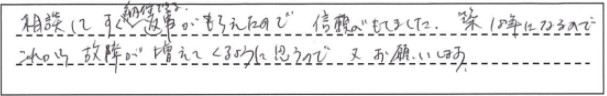 相談してすぐ納得できる返事がもらえたので 信頼がもてました。築18年になるので
これから故障が増えてくるように思うので 又お願いします。